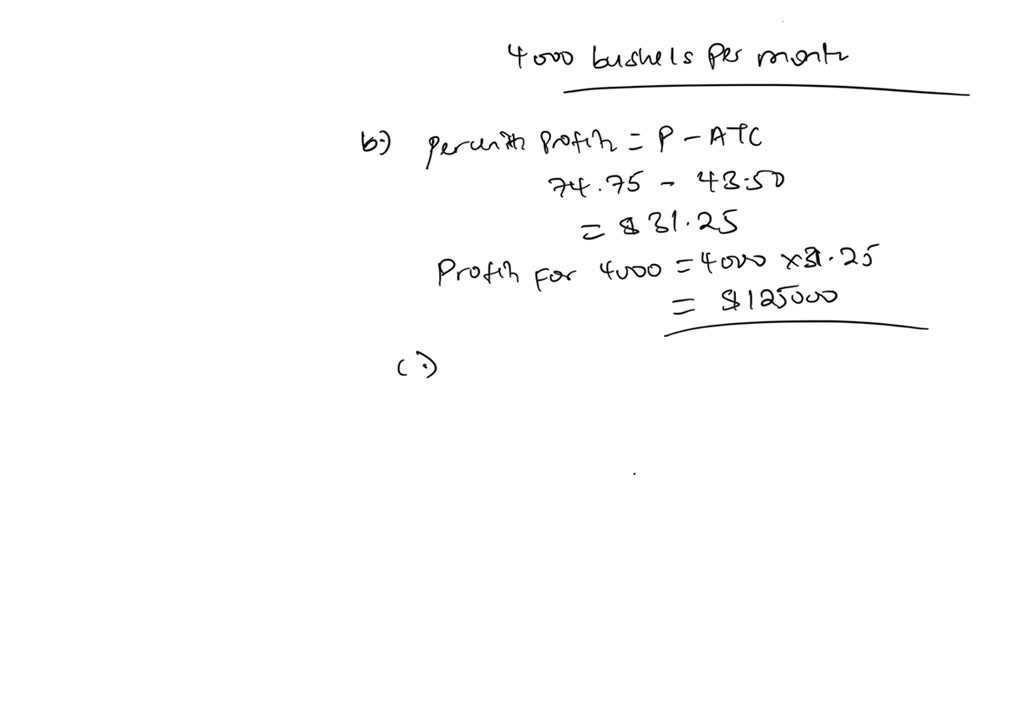 4000 bushels per month
b.) perunit Profit = P - ATC
74.75 - 43.50
= $31.25
Profit for 4000 = 4000 x31.25
= $125000
(.)